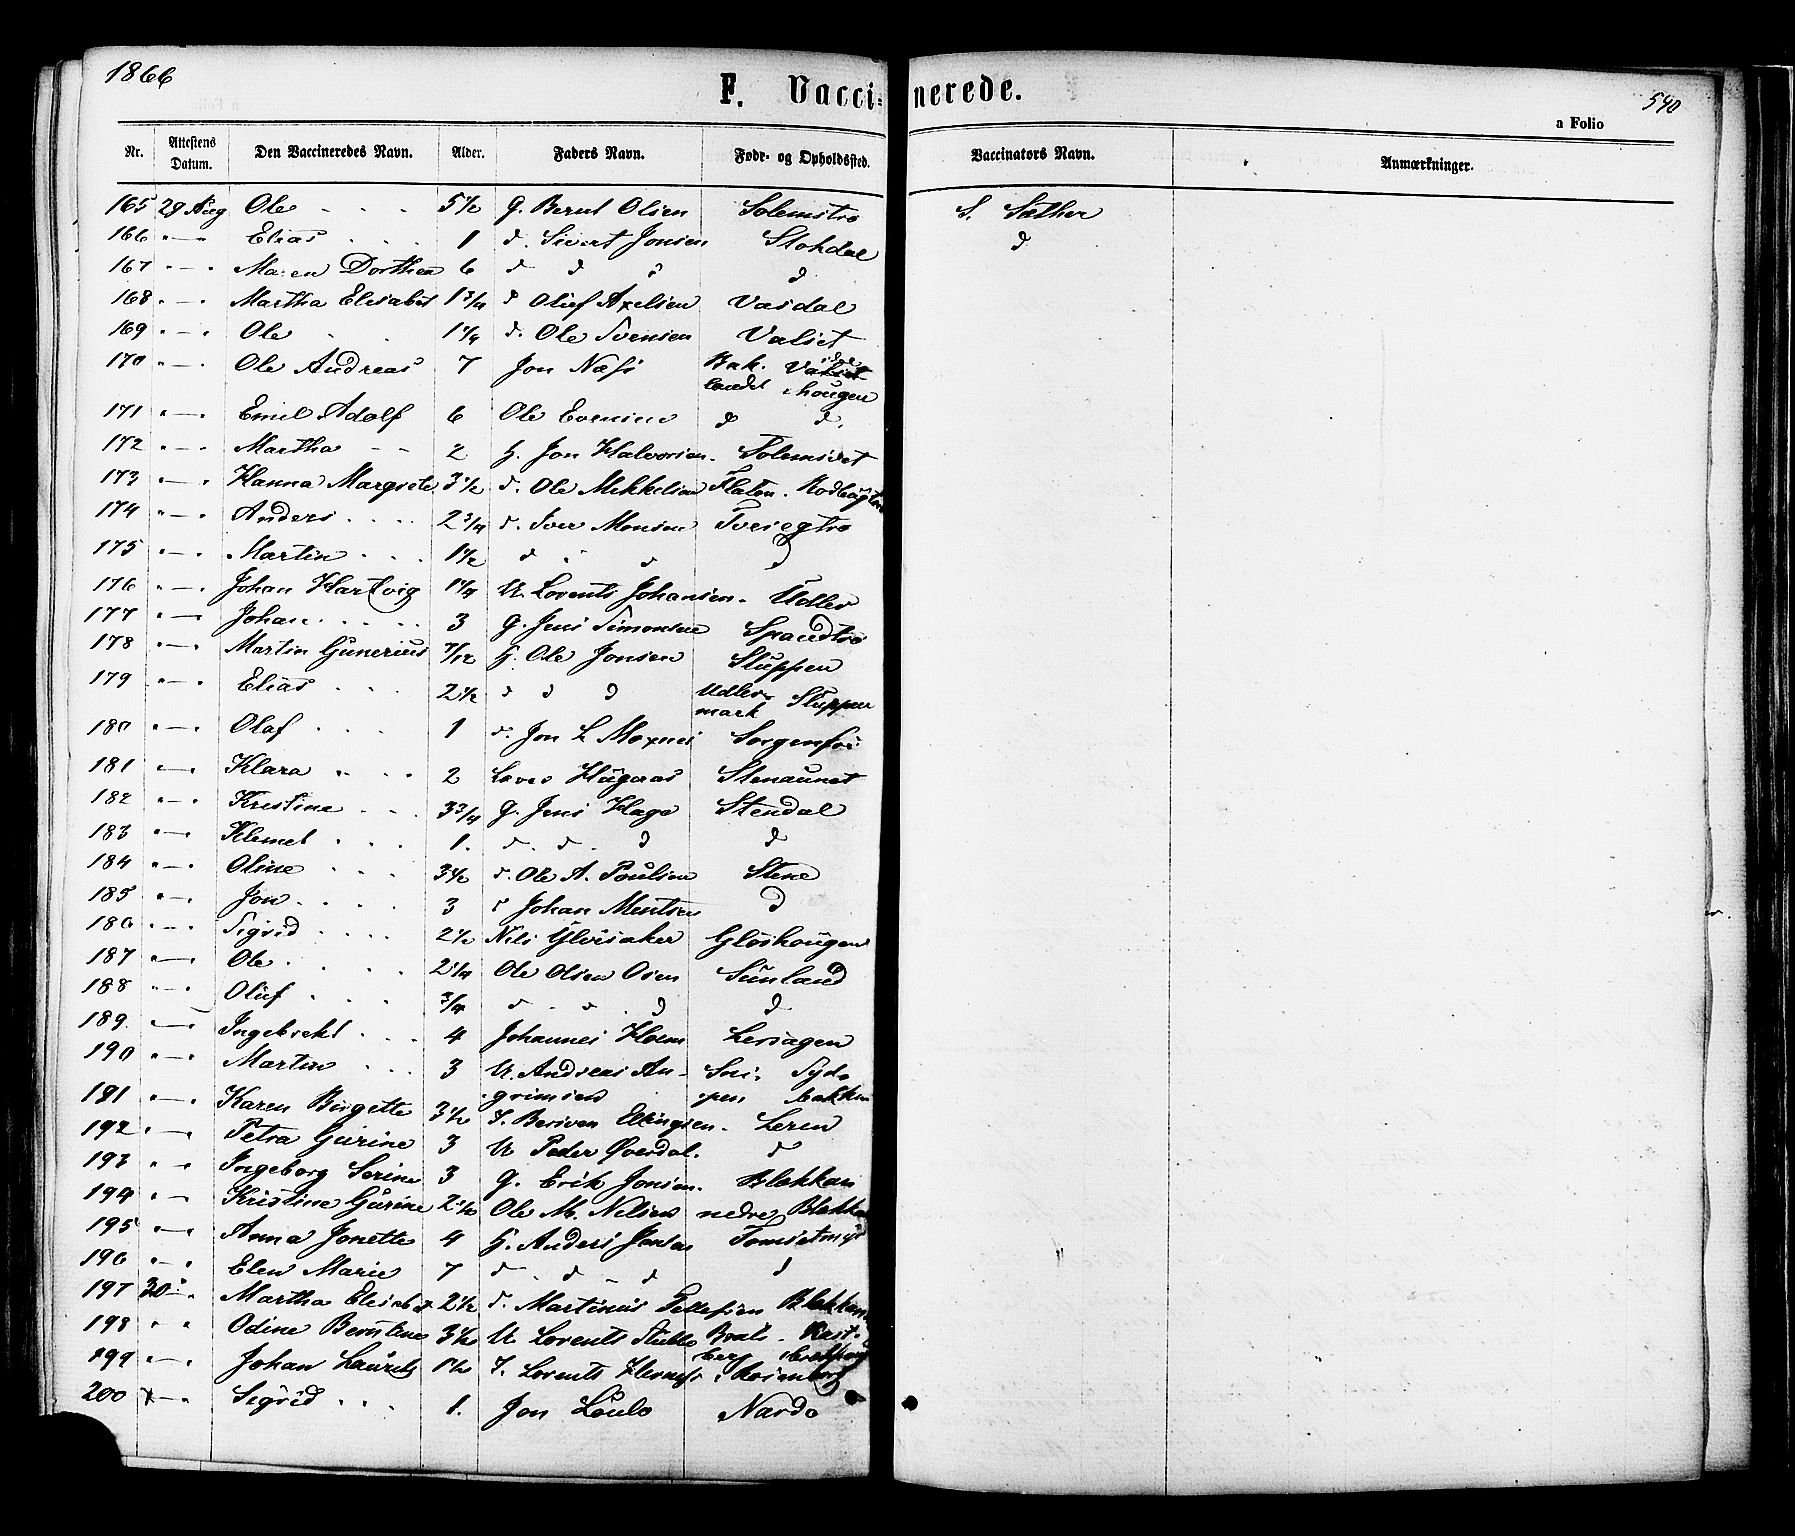 1866
F. Vaccinerede.
540
a Folio
Nr. Attestens Datum. Den Vaccineredes Navn. Alder. Faders Navn. Fødr- og Opholdssted. Vaccinators Navn. Anmærkninger.
165 29 Aug Ole 5½ G. Bernt Olsen Solemstrø S. Sæther
166 " — " Elias 1 d. Sivert Jonsen Stokdal d
167 " — " Maren Dorthea 6 d d d d
168 " — " Martha Elisabet 1¾ d Oluf Axelsen Vasdal
169 " — " Ole 1¼ d. Ole Svensen Valset
170 " — " Ole Andreas 7 Jon Næss Bak-
landet hougen
171 " — " Emil Adolf 6 Ole Evensen d d.
172 " — " Martha 2 H. Jon Halvorsen Solemsvet
173 " — " Hanna Margrete 3½ d. Ole Mikkelsen Flaten.
174 " — " Anders 2¾ d. Iver Monsen
175 " — " Martin 1½ d " d d
176 " — " Johan Hartvig 1¼ U. Lorents Johansen. Udler
177 " — " Johan 3 G. Jens Simonsen
178 " — " Martin Gunerius 7/12 H. Ole Jonsen Sluppen
179 " — " Elias 2½ d d d Udler- Sluppen
mark
180 " — " Olaf 1 d. Jon L Moxnes Sorgenfri
181 " — " Klara 2 Hageraas Stenaunet
182 " — " Kristine 3¾ G. Jens Hage Stendal
183 " — " Klemet 1. d. d. d d
184 " — " Oline 3½ d. Ole A. Poulsen Stene
185 " — " Jon 3 d Johan Mentsen d
186 " — " Sigrid 2½ Nils Ylvisaker Gløshougen
187 " — " Ole 2¼ Ole Olsen Osen Sunland
188 " — " Oluf ¾ d d d d
189. " — " Ingebrekt 4 Johannes Hoem Lersagen
190 " — " Martin 3 U. Andreas An- Sui- Syds
191 " — " Karen Birgette 3½ grimsen pen bakken
192 " — " Petra Gurine 3 Ellingsen. Leren
193 " " Ingeborg Serine 3 U Peder Øverdal. d
194 " — " Kristine Gurine 2½ G. Erik Jonsen. Blekkan
195 " — " Anna Jonette 4 Ole M. Nilsen nedre Blekkan
196 " — " Elen Marie 7 H. Anders Jensen
197 30 " — " Martha Elisabet 2½ d. Martinus Tellefsen Blekkan
198 " " Odine Berntine 3½ U Lorents Stubbe Brats-
199 " — " Johan Laurits 1½ Lorents berg Rosenborg
200 " — " Sigrid 1. Jon Nardo